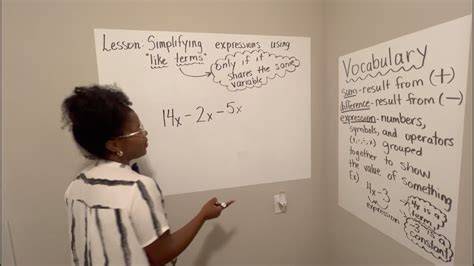 Lesson: Simplifying expressions using
"like terms"
only if it
shares the same
variable
14x - 2x - 5x
Vocabulary
sum - result from (+)
difference - result from (-)
expression - numbers,
symbols, and operators
(+,-,×,÷) grouped
together to show
the value of something
Ex)
4x-3
expression
4x is a
term
-3 is a
constant